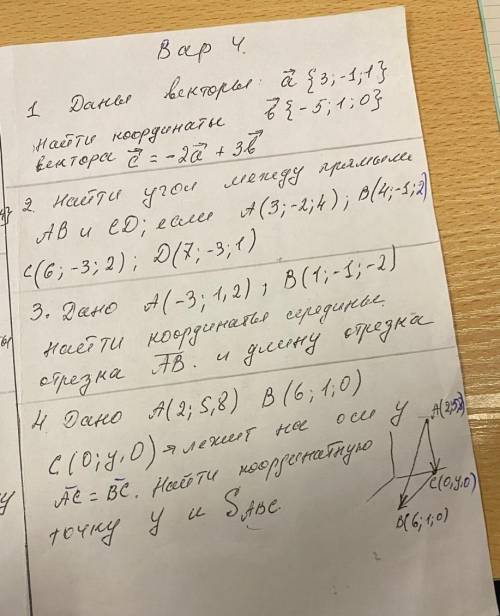 Вар 4.
1 Даны векторы: a {3; -1; 1}
Найти координаты b {-5; 1; 0}
вектора c = -2a + 3b
2. Найти угол между прямыми
АВ и CD; если А(3; -2; 4); В(4; -1; 2)
С(6; -3; 2); D(7; -3; 1)
3. Дано А(-3; 1, 2); В(1; -1; -2)
Найти координаты середины
отрезка АВ. и длину отрезка
4 Дано А(2; 5, 8) В(6; 1; 0)
С(0; y, 0) → лежит на оси y
АС = ВС. Найти координатную
точку y и SАВС
А(2;5;8)
С(0,y,0)
В(6; 1; 0)